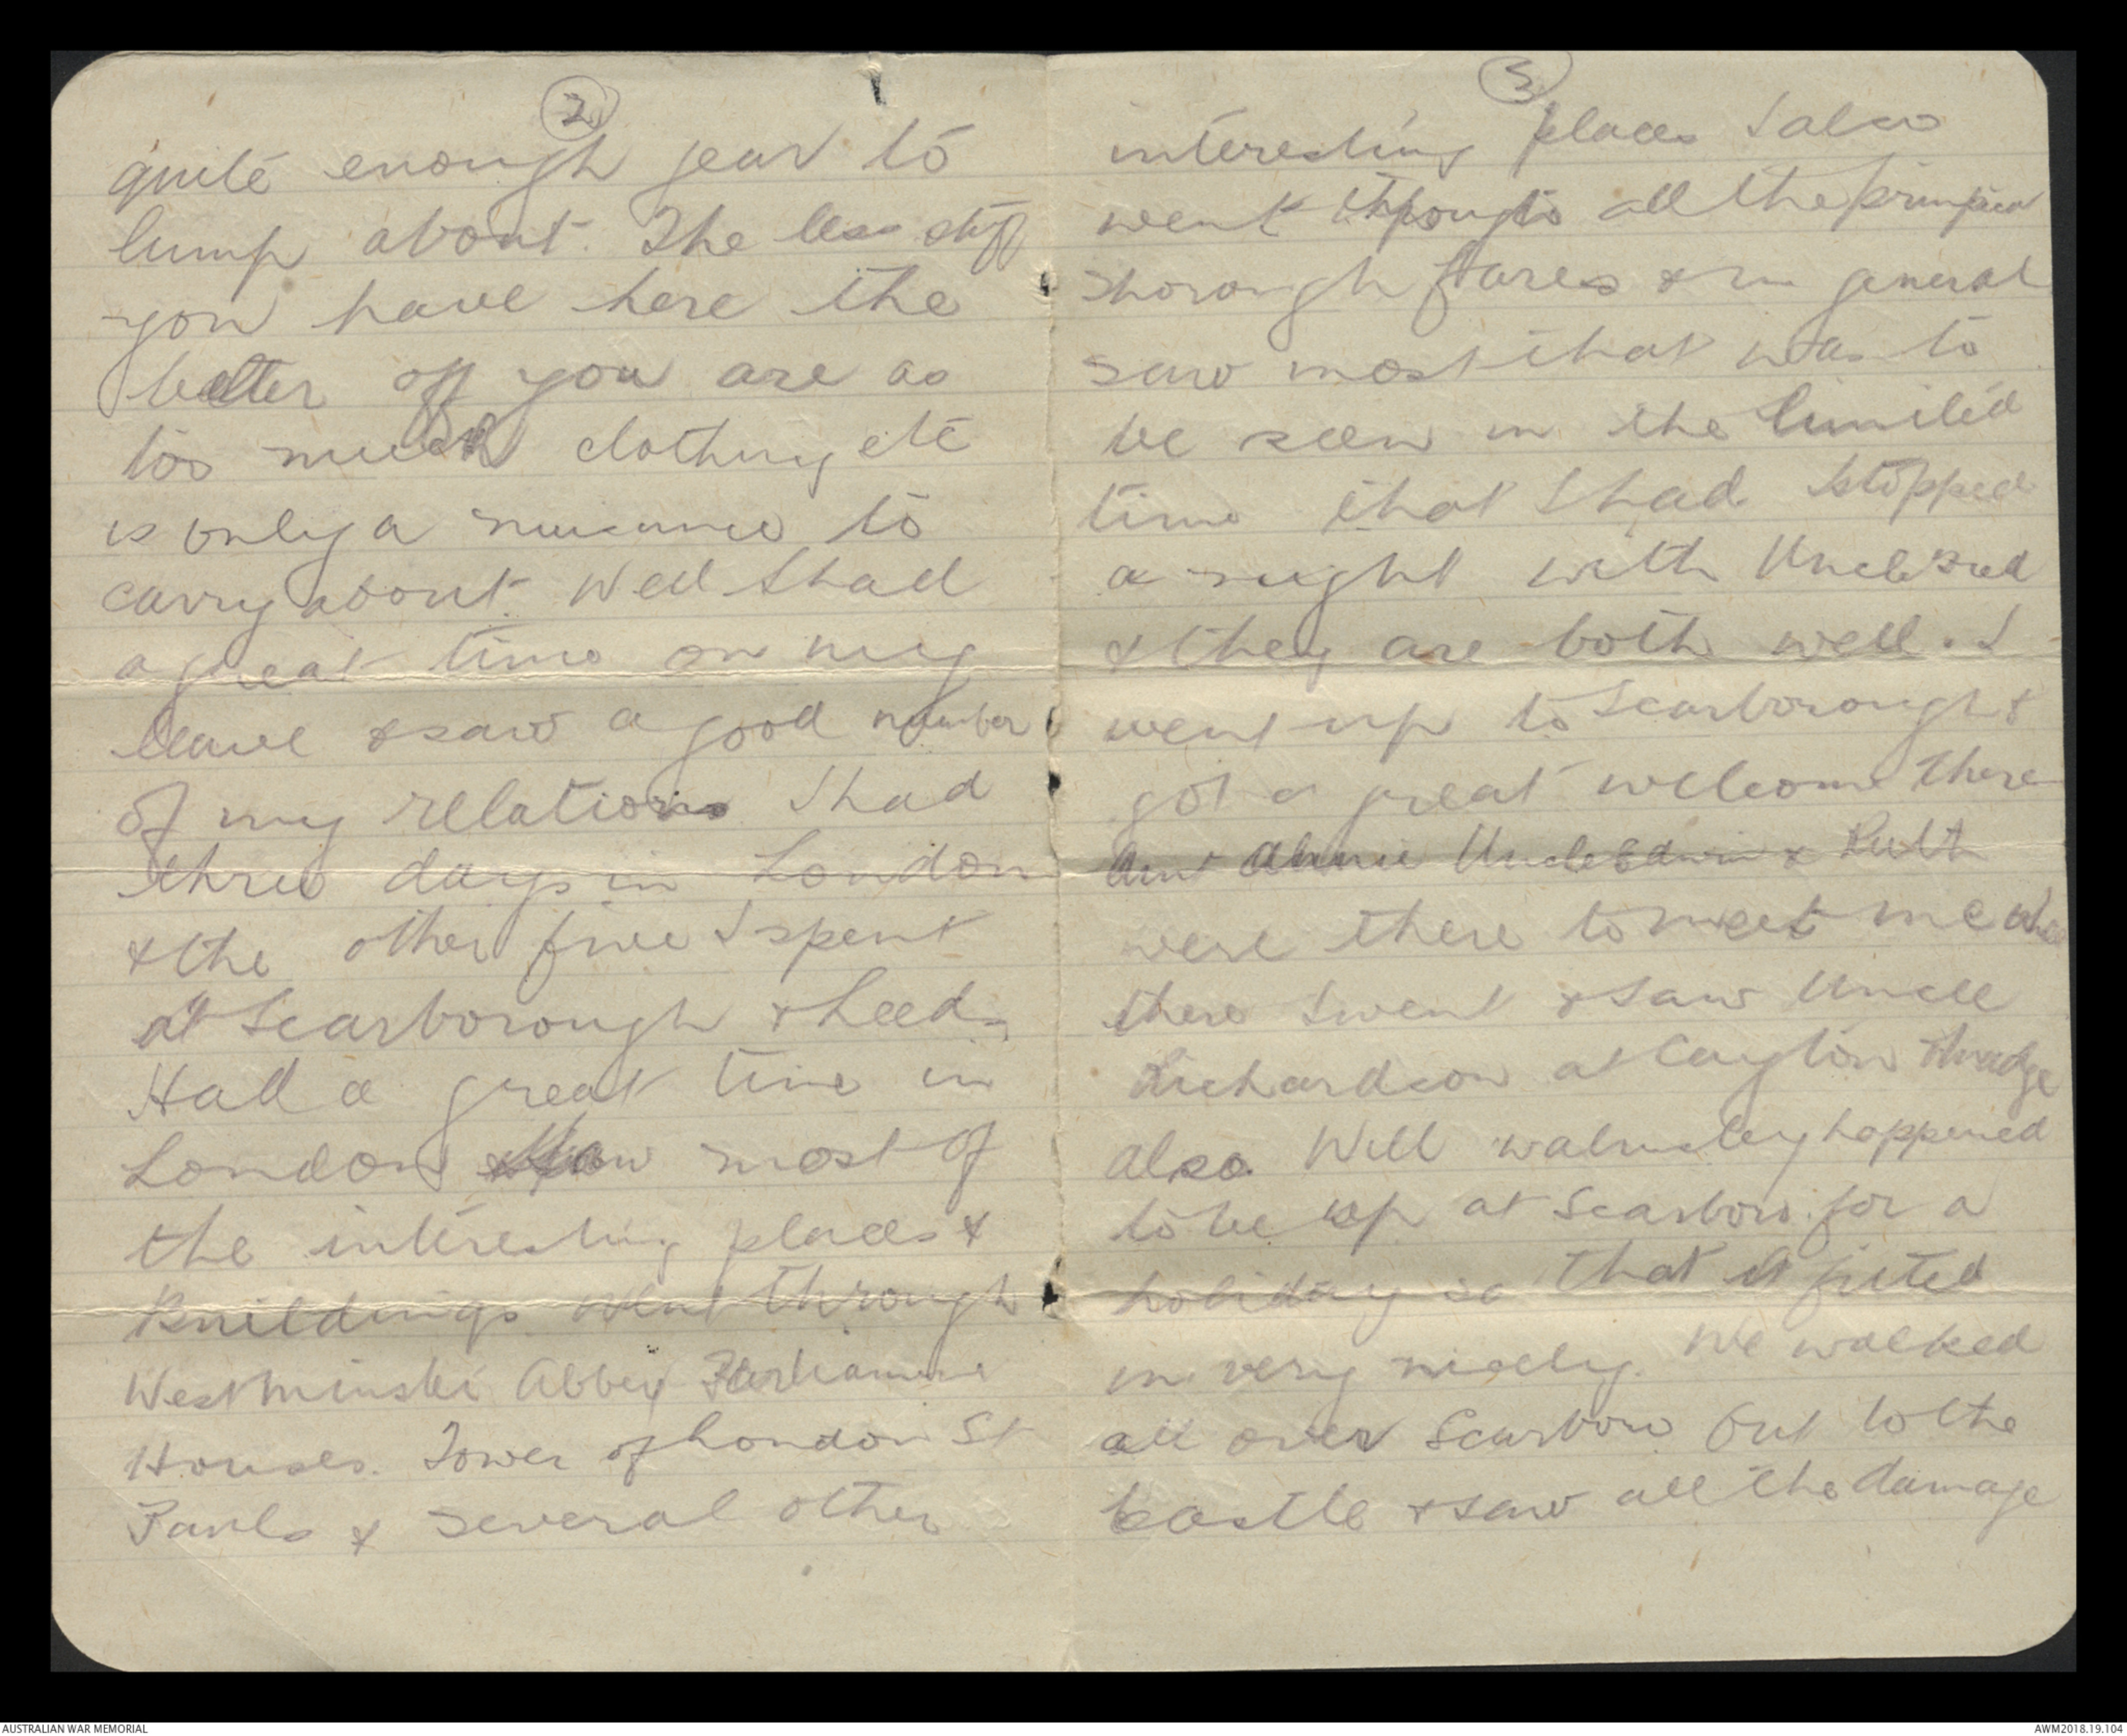 2
quite enough gear to
lump about. The less stuff
you have here the
better off you are as
too much clothing etc
is only a nuisance to
carry about. Well I had
a great time on my
leave & saw a good number
of my relations I had
three days in London
& the other five I spent
at Scarborough & Leeds
Had a great time in
London saw most of
the interesting places &
Buildings went through
Westminster Abbey Parliament
Houses. Tower of London St
Pauls & several other
3
interesting places I also
went through all the principal
thorough fares & in general
saw most that was to
be seen in the limited
time that I had I stopped
a night with Uncle
& they are both well. I
went up to Scarborough &
got a great welcome there
Aunt Annie Uncle Edwin & Ruth
were there to meet me
there I went & saw Uncle
Richardson at Cayton
also. Will Walmsley happened
to be up at Scarboro. for a
holiday so that it fited
in very nicely. We walked
all over Scarboro out to the
Castle & saw all the damage
AUSTRALIAN WAR MEMORIAL
AWM2018.19.104